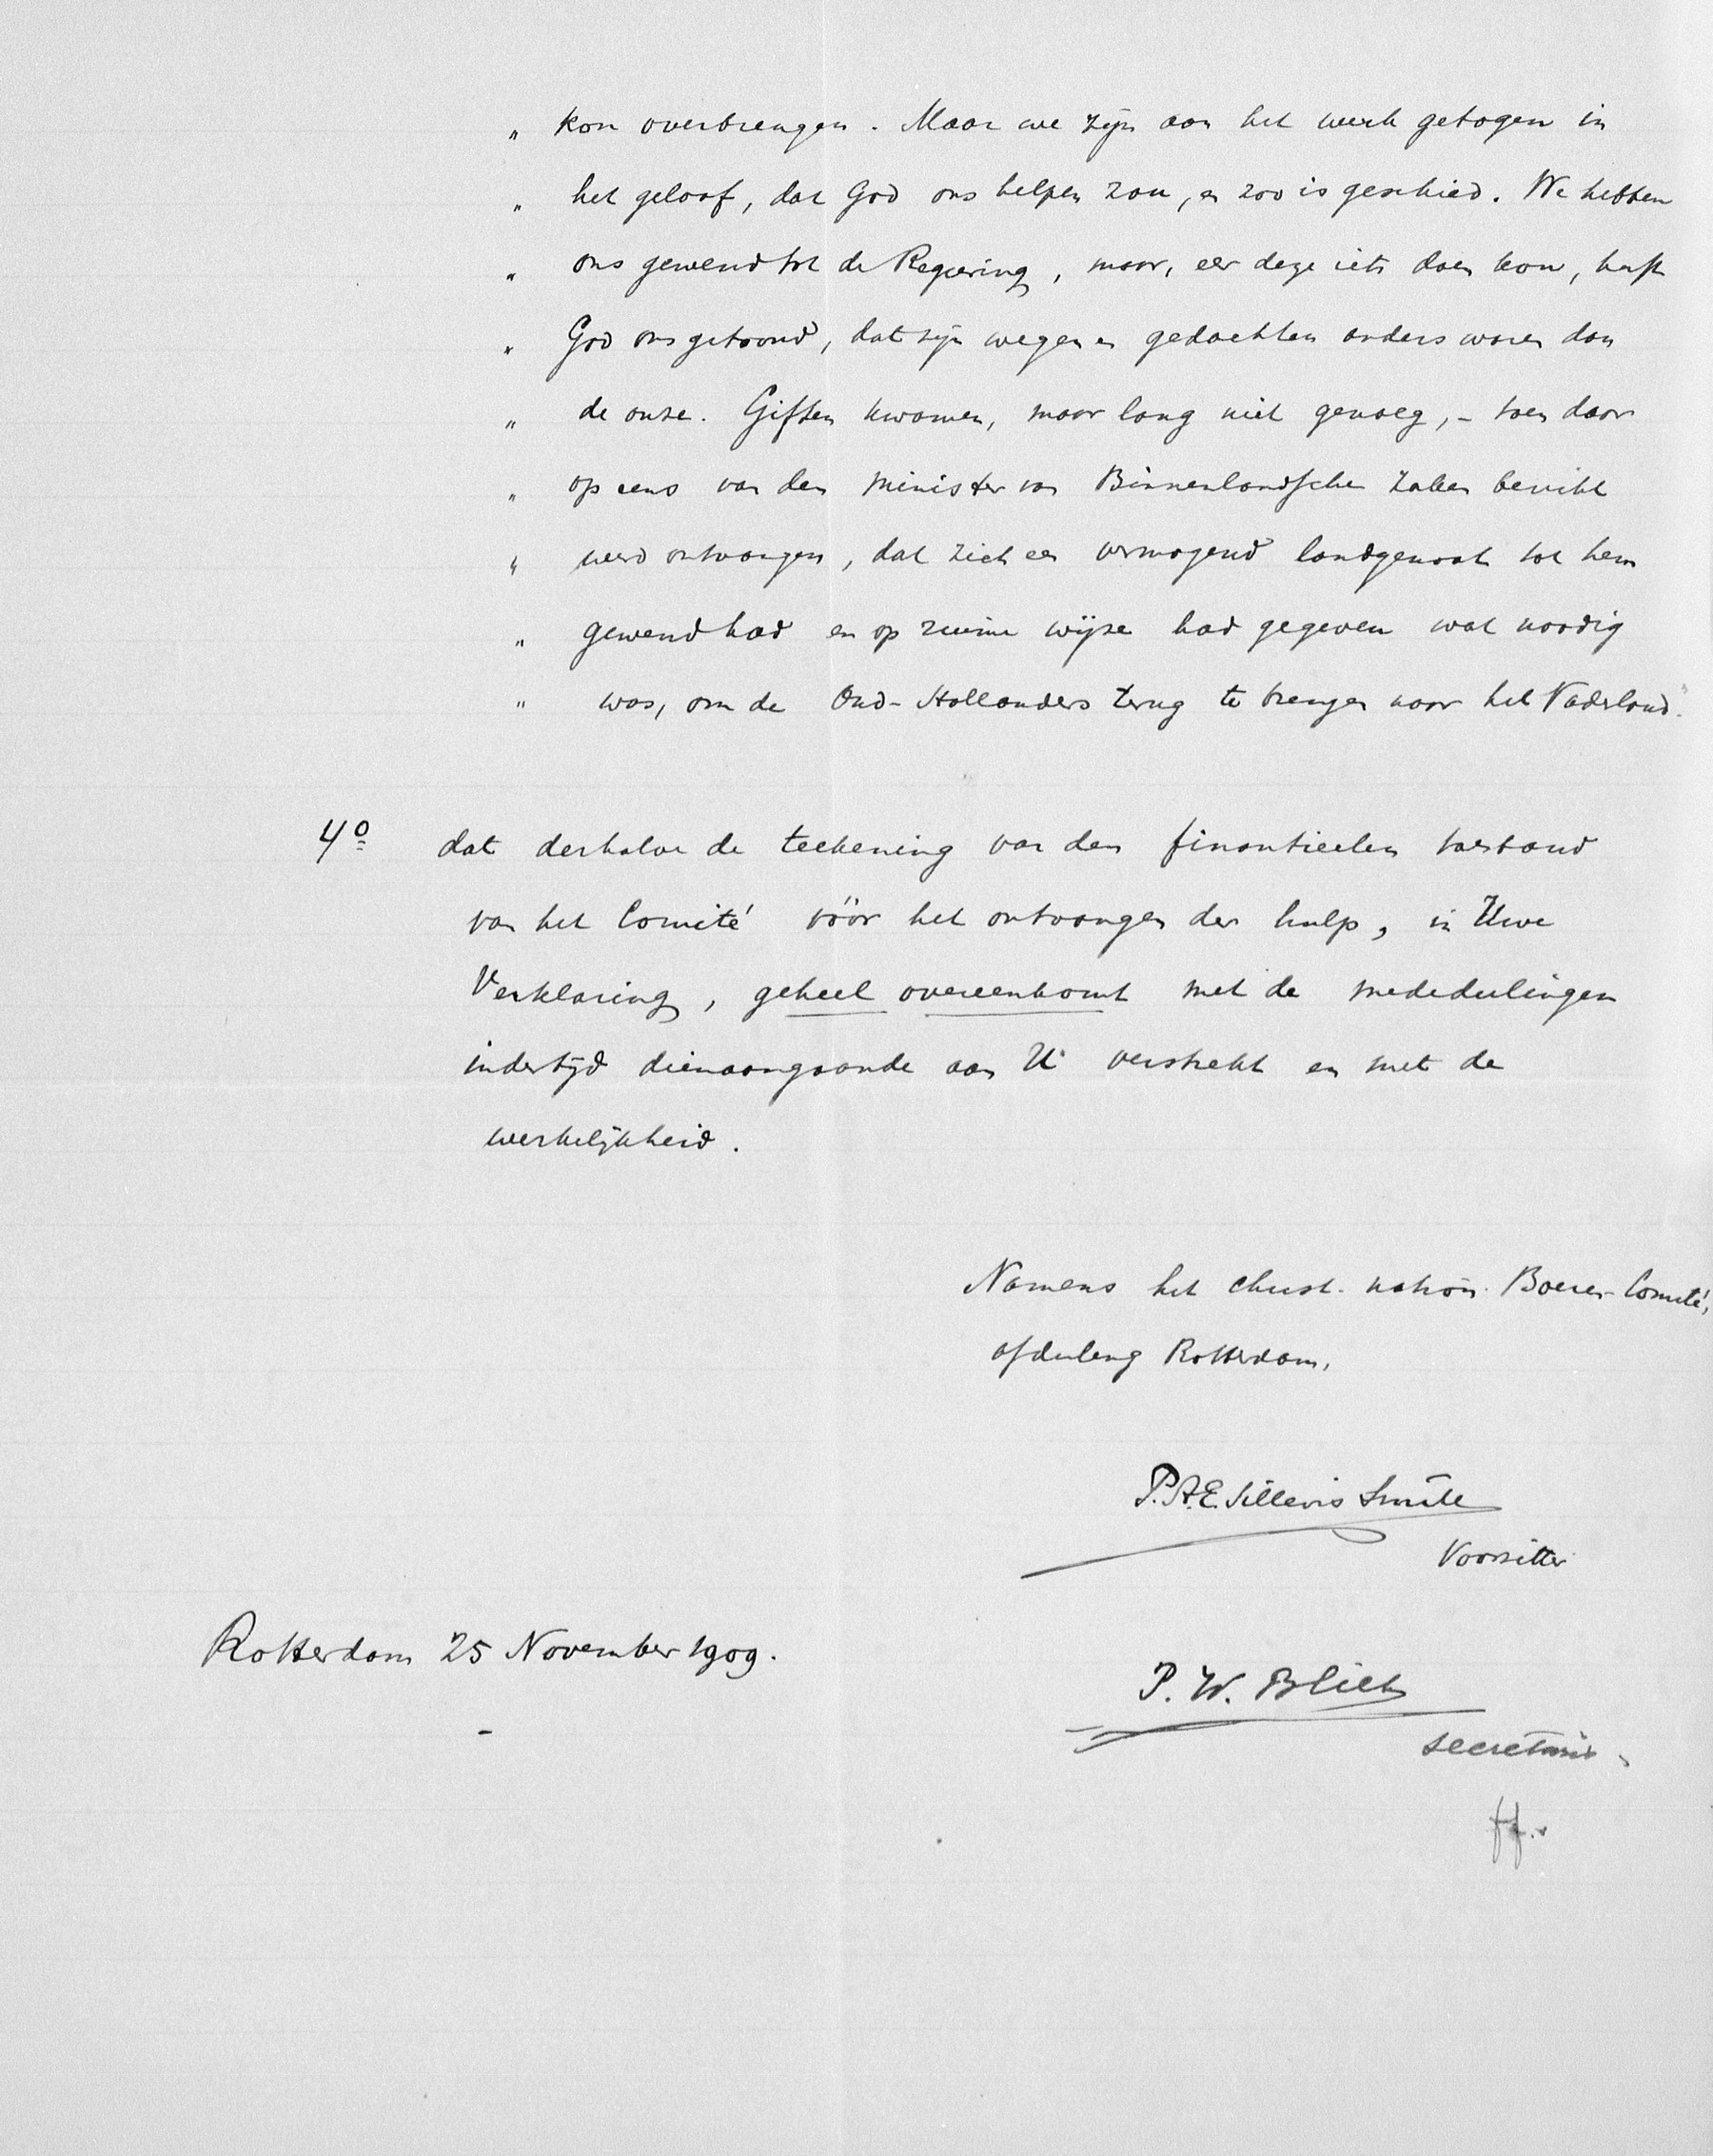 " kon overbrengen. Maar we zijn aan het werk getogen in
" het geloof, dat God ons helpen zou, en zoo is geschied. We hebben
" ons gewend tot de Regeering, maar, eer deze iets doen kon, heeft
" God ons getoond, dat zijn wegen en gedachten anders waren dan
" de onze. Giften kwamen, maar lang niet genoeg, - toen daar
" op eens van den Minister van Binnenlandsche Zaken bericht
" werd ontvangen, dat zich een vermogend landgenoot tot hem
" gewend had en op ruime wijze had gegeven wat noodig
" was, om de Oud-Hollanders terug te brengen naar het Vaderland.
4º dat derhalve de teekening van den finantieelen toestand
van het Comité vóór het ontvangen der hulp, in Uwe
Verklaring, geheel overeenkomt met de mededeelingen
indertijd dienaangaande aan U verstrekt en met de
werkelijkheid.
Namens het christ. nation. Boeren-Comité,
afdeeling Rotterdam,
P.A.E. Sillevis Smitt
Voorzitter
Rotterdam 25 November 1909.
P. W. Bliek
secretaris
ff.